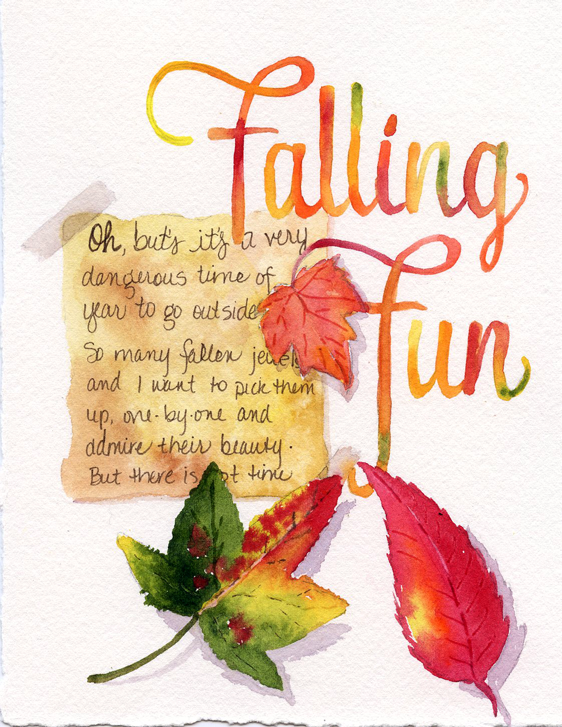 Falling
Fun
Oh, but's it's a very
dangerous time of
year to go outside
So many fallen
and I want to pick them
up, one-by-one and
admire their beauty.
But there is time